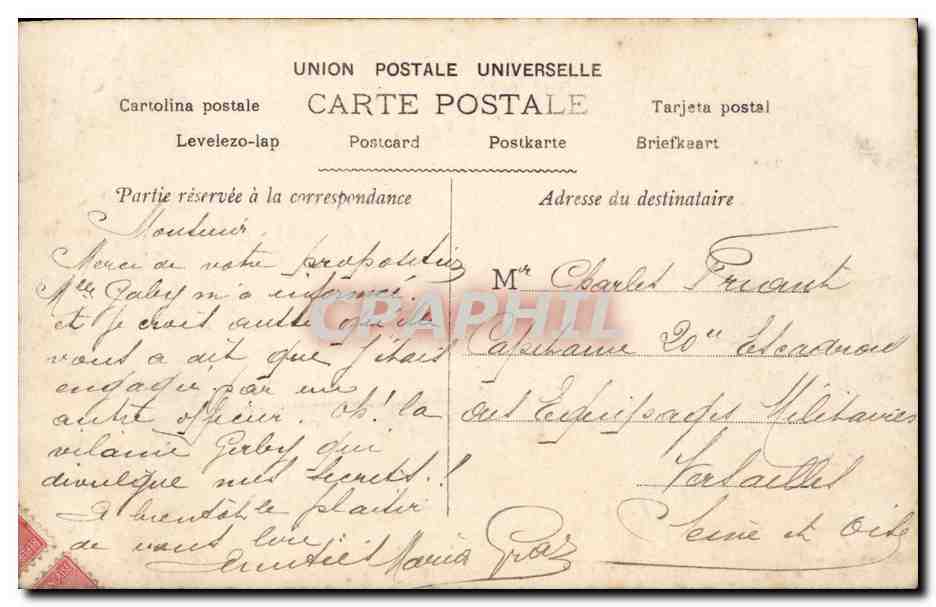 UNION POSTALE UNIVERSELLE
CARTE POSTALE
Cartolina postale
Tarjeta postal
Levelezo-lap
Postcard
Postkarte
Briefkaart
Partie réservée à la correspondance
Monsieur.
Merci de votre proposition
Mlle Gaby m'a informé.
et je crois aussi qu'elle
vous a dit que j'étais
engagée par un
autre officier. Oh! la
vilaine Gaby qui
divulgue mes secrets.!
A bientôt le plaisir
de vous lire
Amitiés Maria
Adresse du destinataire
Mr Charles Friant
Capitaine 20e Escadron
des Equipages Militaires
Versailles
Seine et Oise
CPAPHIL